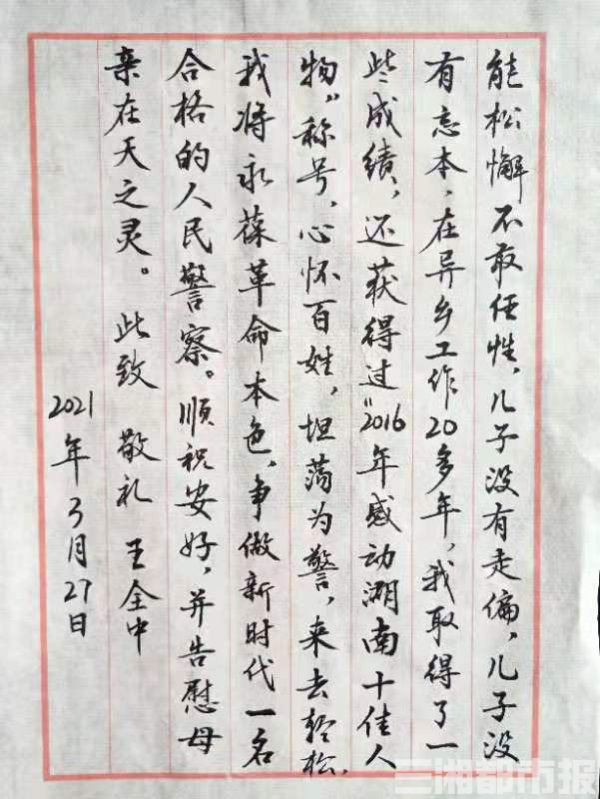 能松懈不敢任性,儿子没有走偏,儿子没
有忘本,在异乡工作20多年,我取得了一
些成绩,还获得过“2016年感动湖南十佳人
物”称号,心怀百姓,坦荡为警,来去轻松,
我将永葆革命本色,争做新时代一名
合格的人民警察。顺祝安好,并告慰母
亲在天之灵。 此致 敬礼 王全中
2021年3月27日
三湘都市报